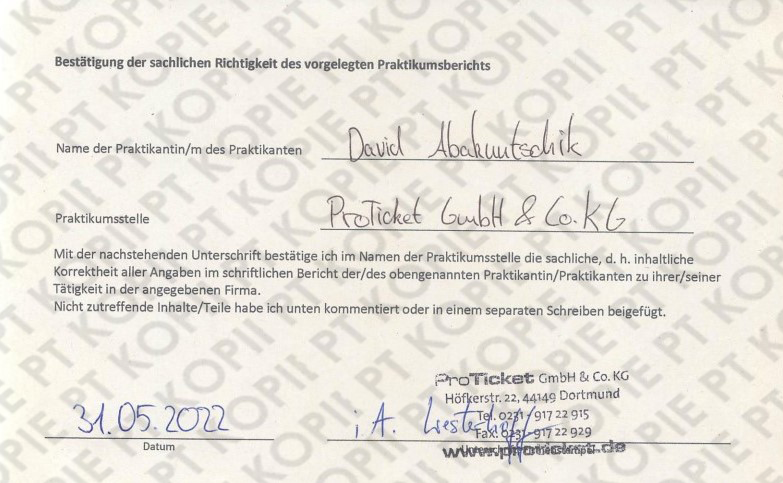 Bestätigung der sachlichen Richtigkeit des vorgelegten Praktikumsberichts
Name der Praktikantin/m des Praktikanten David Abakumtschik
Praktikumsstelle ProTicket GmbH & Co. KG
Mit der nachstehenden Unterschrift bestätige ich im Namen der Praktikumsstelle die sachliche, d. h. inhaltliche
Korrektheit aller Angaben im schriftlichen Bericht der/des obengenannten Praktikantin/Praktikanten zu ihrer/seiner
Tätigkeit in der angegebenen Firma.
Nicht zutreffende Inhalte/Teile habe ich unten kommentiert oder in einem separaten Schreiben beigefügt.
ProTicket GmbH & Co. KG
Höfkerstr. 22, 44149 Dortmund
Tel. 0231/917 22 915
Fax: 0231-917 22 929
www.proticket.de
31.05.2022 i A.
Datum